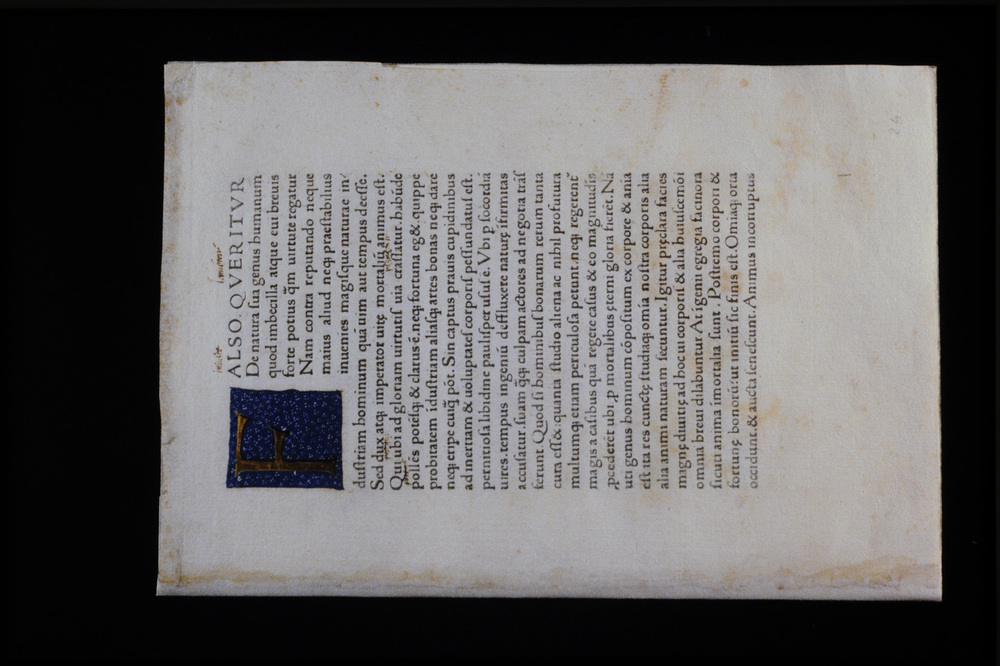 FALSO.QVERITVR
De natura sua genus humanum
quod imbecilla atque eui breuis
forte potius q̃m uirtute regatur
Nam contra reputando neque
maius aliud neqꝫ praestabilius
inuenies magisque naturae in/
dustriam hominum quã uim aut tempus deesse.
Sed dux atqꝫ imperator uitę mortaliũ animus est.
Qui ubi ad gloriam uirtutis uia crassatur. habũde
pollẽs potẽsqꝫ & clarus ẽ. neqꝫ fortuna eg& . quippe
probitatem ĩdustriam aliasqꝫ artes bonas neqꝫ dare
neqꝫ eripe cuiq̃ põt. Sin captus prauis cupidinibus
ad inertiam & uoluptates corporis pessundatus est.
pernitiosa libidine paulisper usus ẽ. Vbi ꝑ socordiã
uires. tempus ingeniũ defluxere naturę ĩfirmitas
accusatur. suam q̃qꝫ culpam actores ad negotia trãs
ferunt. Quod si hominibus bonarum rerum tanta
cura ess& . quanta studio aliena ac nihil profutura
multumqꝫ etiam periculosa petunt. neqꝫ regerent᷑
magis a casibus quã regere casus & eo magnitudĩs
ꝓcederẽt ubi .ꝓ mortalibus ęterni gloria fierẽt. Nã
uti genus hominum cõpositum ex corpore & aĩa
est ita res cunctę studiaqꝫ omĩa nostra corporis alia
alia animi naturam secuntur. Igitur pręclara facies
magnę diuitię ad hoc uis corporis & alia huiuscemõi
omnia breui dilabuntur At ĩgenii egregia facinora
sicuti anima ĩmortalia sunt . Postremo corporis &
fortunę bonorũ: ut initiũ sic finis est. Omĩaqꝫ orta
occidunt. & aucta senescunt. Animus incorruptus
24